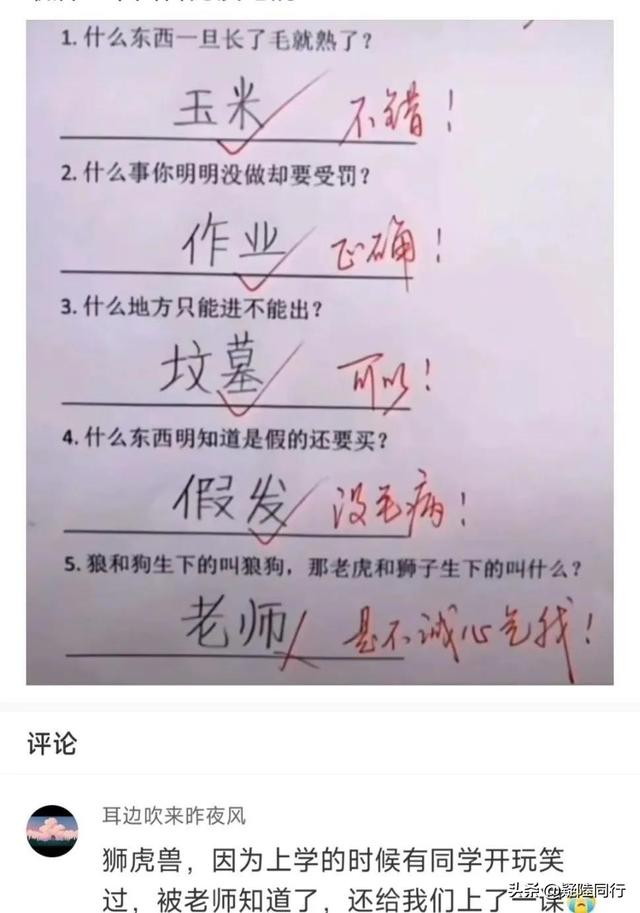 1. 什么东西一旦长了毛就熟了?
玉米 不错!
2. 什么事你明明没做却要受罚?
作业 正确!
3. 什么地方只能进不能出?
坟墓 可以!
4. 什么东西明知道是假的还要买?
假发 没毛病!
5. 狼和狗生下的叫狼狗，那老虎和狮子生下的叫什么?
老师 是不诚心气我!
评论
耳边吹来昨夜风
狮虎兽，因为上学的时候有同学开玩笑
过，被老师知道了，还给我们上了一课
头条 @疑陆同行